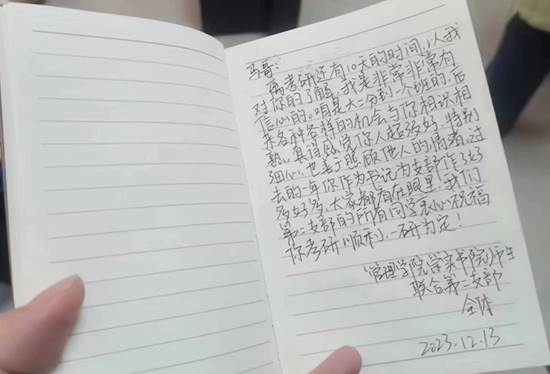 马哥:
离考研还有10天的时间,以我
对你的了解,我是非常非常有
信心的。咱是大二分到一班的,后
来各种各样的机会与你相识相
熟。真得感觉你人超级好,特别
细心,也善于照顾他人的情绪,过
去的一年你作为书记为支部作了好
多好事,大家都看在眼里,我们
第二支部的所有同学衷心祝福
你考研顺利,一研为定!
管理学院崇实书院学生
联合第二支部
全体
2023.12.13